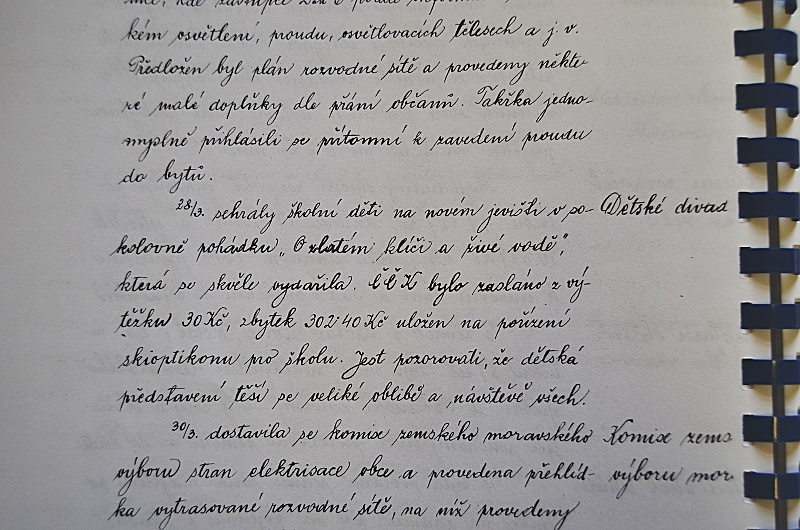 kém osvětlení, proudu, osvětlovacích tělesech a j. v.
Předložen byl plán rozvodné sítě a provedeny někte-
ré malé doplňky dle přání občanů. Takřka jedno-
myslně přihlásili se přítomní k zavedení proudu
do bytů.
28/3. sehrály školní děti na novém jevišti v so- Dětské divad
kolovně pohádku „O zlatém klíči a živé vodě",
která se skvěle vydařila. ČČK bylo zasláno z vý-
těžku 30 Kč, zbytek 302·40 Kč uložen na pořízení
skioptikonu pro školu. Jest pozorovati, že dětská
představení těší se veliké oblibě a návštěvě všech.
30/3. dostavila se komise zemského moravského Komise zems
výboru stran elektrisace obce a provedena přehlíd- výboru mor
ka vytrasované rozvodné sítě, na níž provedeny